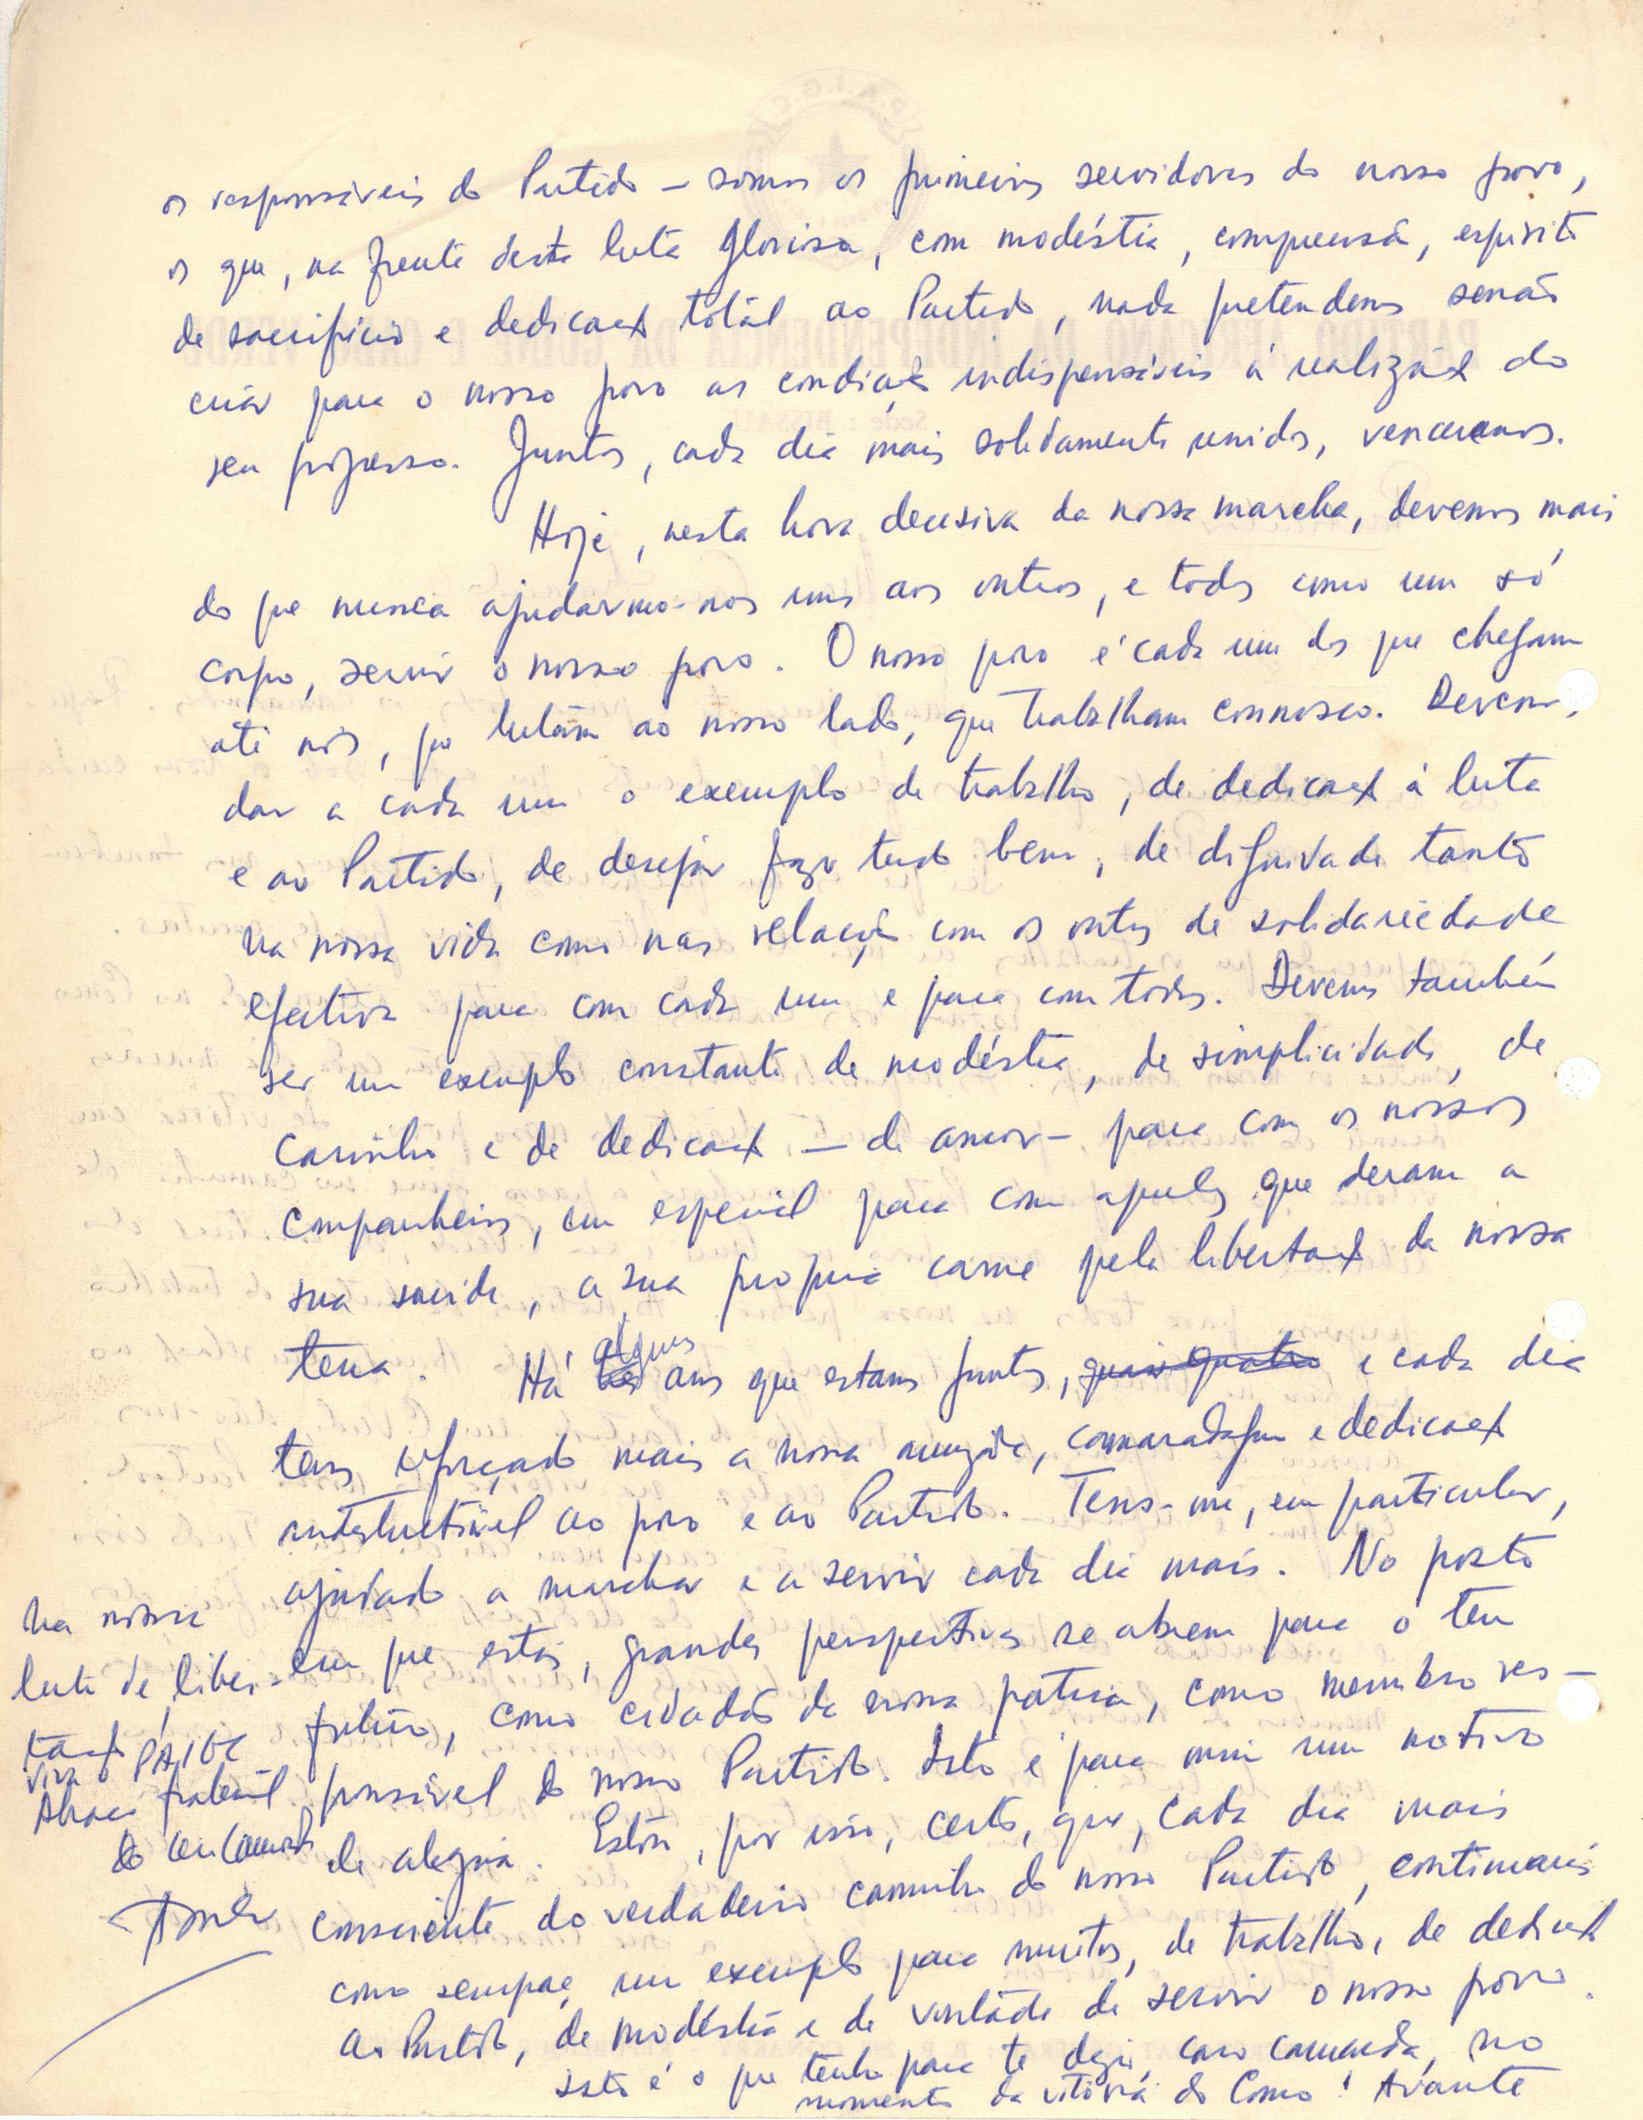 os responsáveis do Partido — somos os primeiros servidores do nosso povo,
os que, na frente desta luta gloriosa, com modéstia, compreensão, espírito
de sacrifício e dedicação totál ao Partido, nada pretendemos senão
criár para o nosso povo as condições indispensáveis á realização do
seu progresso. Juntos, cada dia mais solidamente unidos, venceremos.
Hoje, nesta hora decisiva da nossa marcha, devemos mais
do que nunca ajudarmo-nos uns aos outros, e todos como um só
corpo, servir o nosso povo. O nosso povo é cada um dos que chegam
até nós, que lutám ao nosso lado, que trabalham connosco. Devemos
dar a cada um o exemplo de trabalho, de dedicação á luta
e ao Partido, de desejár fazer tudo bem, de dignidade tanto
na nossa vida como nas relações com os outros de solidariedade
efectiva para com cada um e para com todos. Devemos também
ser um exemplo constante de modéstia, de simplicidade, de
carinho e de dedicação — de amor — para com os nossos
companheiros, em especial para com aqueles que deram a
sua saúde, a sua propria carne pela libertação da nossa
terra. Há alguns anos que estamos juntos, e cada dia
temos reforçado mais a nossa amizade, camaradagem e dedicação
indestructível ao povo e ao Partido. Tens-me, em particular,
ajudado a marchar e a servir cada dia mais. No posto
em que estás, grandes perspectivas se abrem para o teu
futuro, como cidadão da nossa patria, como membro res-
ponsável do nosso Partido. Isto é para mim um motivo
de alegria. Estou, por isso, certo, que, cada dia mais
consciente do verdadeiro caminho do nosso Partido, continuarás
como sempre, um exemplo para muitos, de trabalho, de dedicação
ao Partido, de modéstia e de vontade de servir o nosso povo.
Isto é o que tenho para te dizer, caro camarada, no
momento da vitória do Como! Avante
na nossa
luta de liber-
tação
Viva o PAIGC
Abraço fraternál
do teu camarada